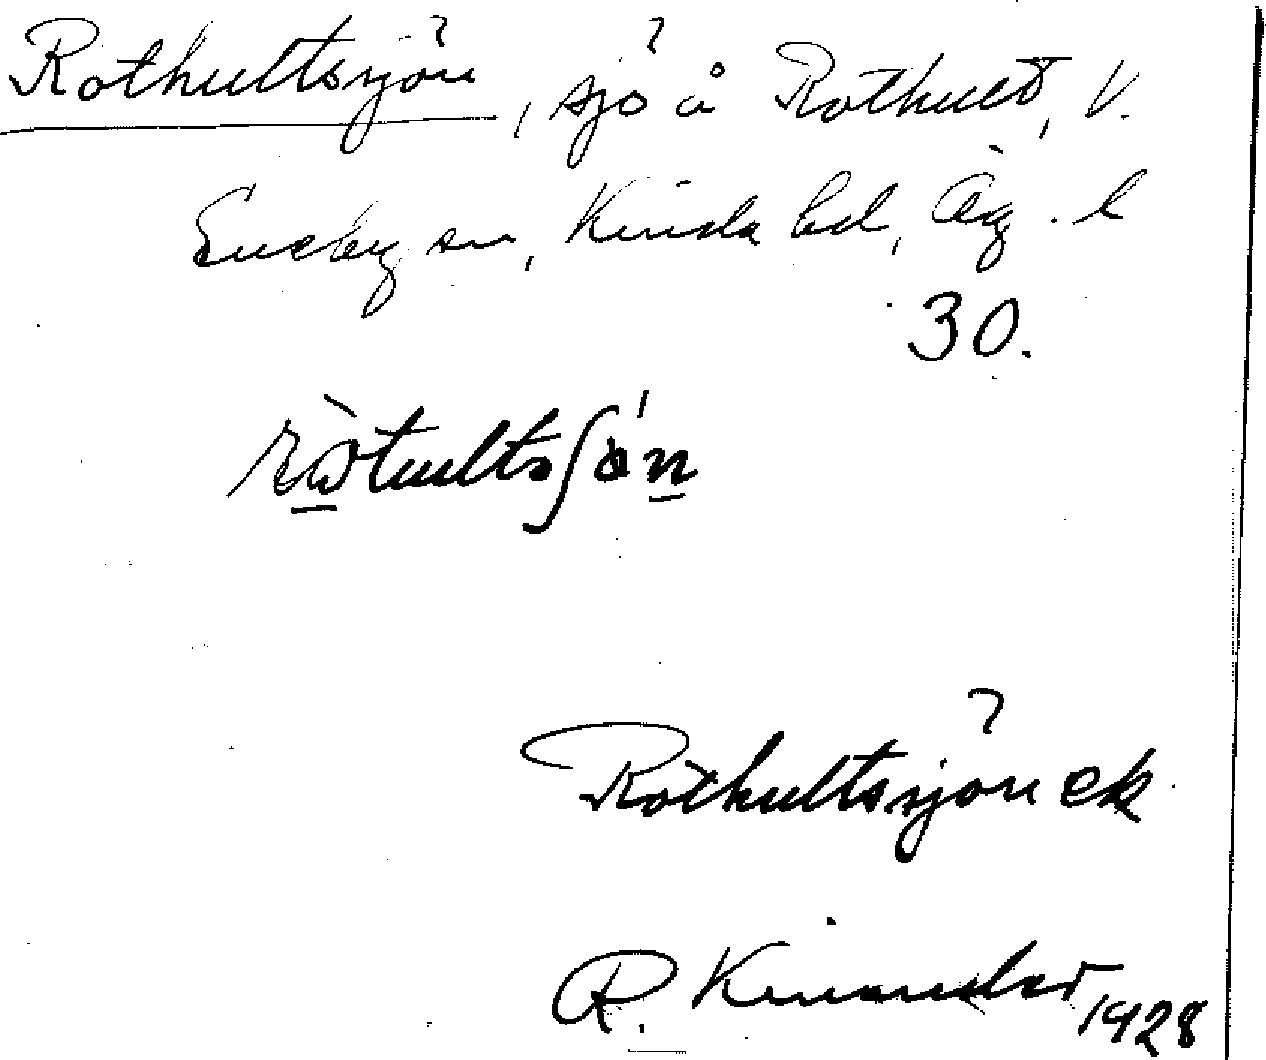 Rothultssjön, sjö å Rothult, V.
Eneby sn, Kinda hd, Ög. l
30.
Rothultssjön ek
R. Kinander 1928